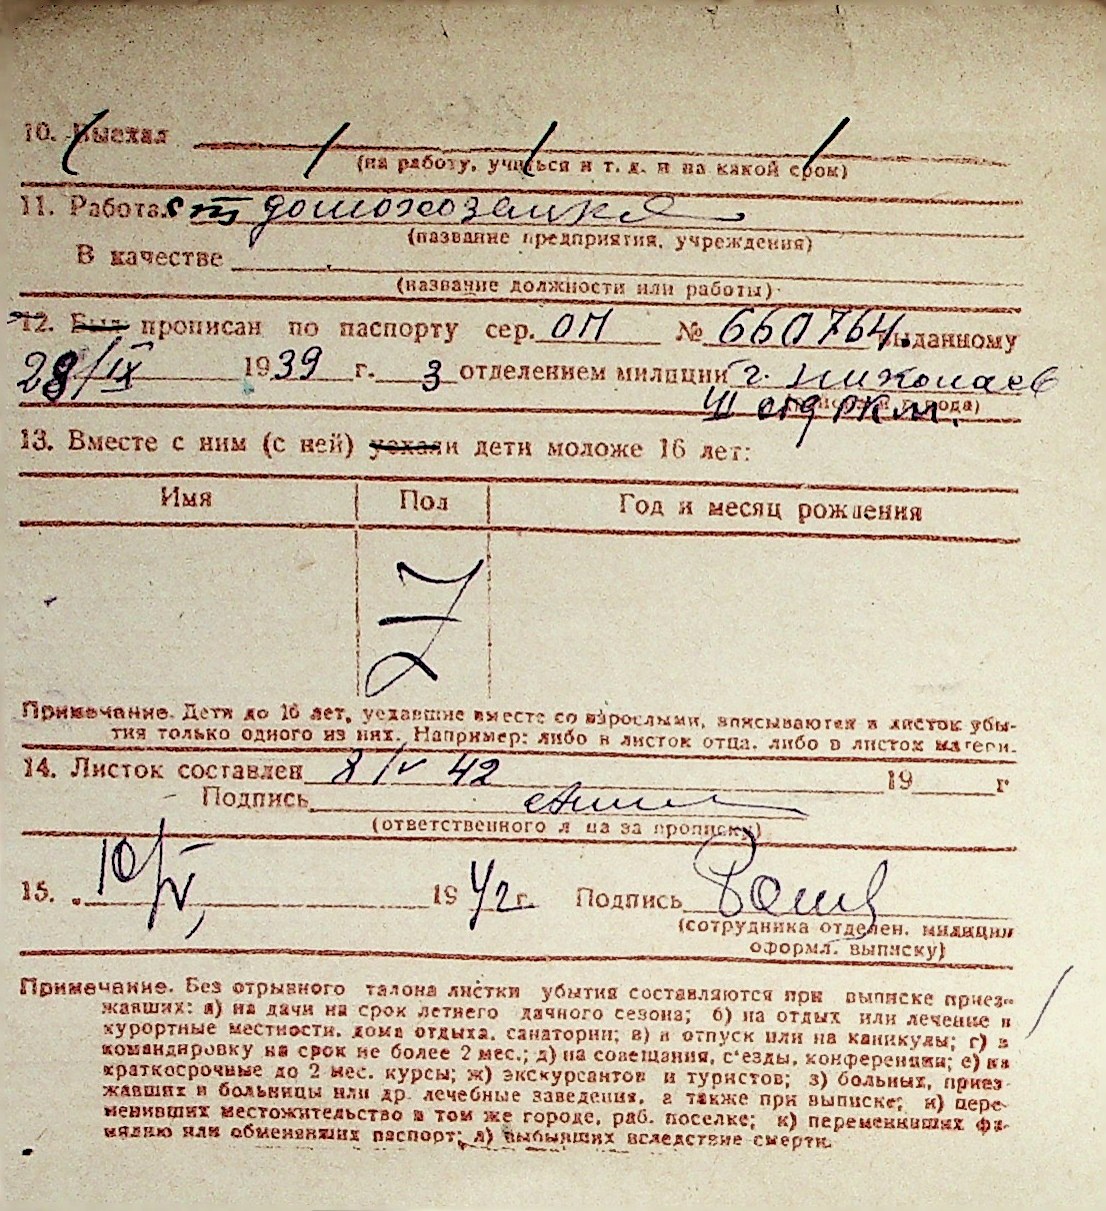 10. Выехал
(на работу, учиться и т. д. и на какой срок)
11. Работа домохозяйка
(название предприятия, учреждения)
В качестве
(название должности или работы)
12. Был прописан по паспорту сер. ОП № 660764 выданному
28/IX 1939 г. 3 отделением милиции г. Николаев
III отд РКМ.
13. Вместе с ним (с ней) уехали дети моложе 16 лет:
Имя Пол Год и месяц рождения
Примечание. Дети до 16 лет, уехавшие вместе со взрослыми, вписываются в листок убы-
тия только одного из них. Например: либо в листок отца, либо в листок матери.
14. Листок составлен 8 IV 42 19 г
Подпись
(ответственного лица за прописку)
15. 10/IV, 1942 г. Подпись
(сотрудника отделен. милиции
оформл. выписку)
Примечание. Без отрывного талона листки убытия составляются при выписке приез-
жавших: а) на дачи на срок летнего дачного сезона; б) на отдых или лечение в
курортные местности, дома отдыха, санатории; в) в отпуск или на каникулы; г) в
командировку на срок не более 2 мес.; д) на совещания, с'езды, конференции; е) на
краткосрочные до 2 мес. курсы; ж) экскурсантов и туристов; з) больных, приез-
жавших в больницы или др. лечебные заведения, а также при выписке; и) пере-
менивших местожительство в том же городе, раб. поселке; к) переменивших фа-
милию или обменявших паспорт; л) выбывших вследствие смерти.